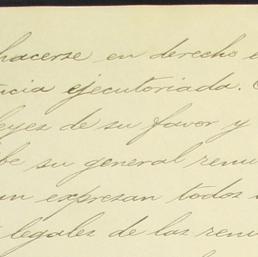 hacerse en derecho e
ncia ejecutoriada.
leyes de su favor y
be su general renu
an expresan todos
legales de las renu